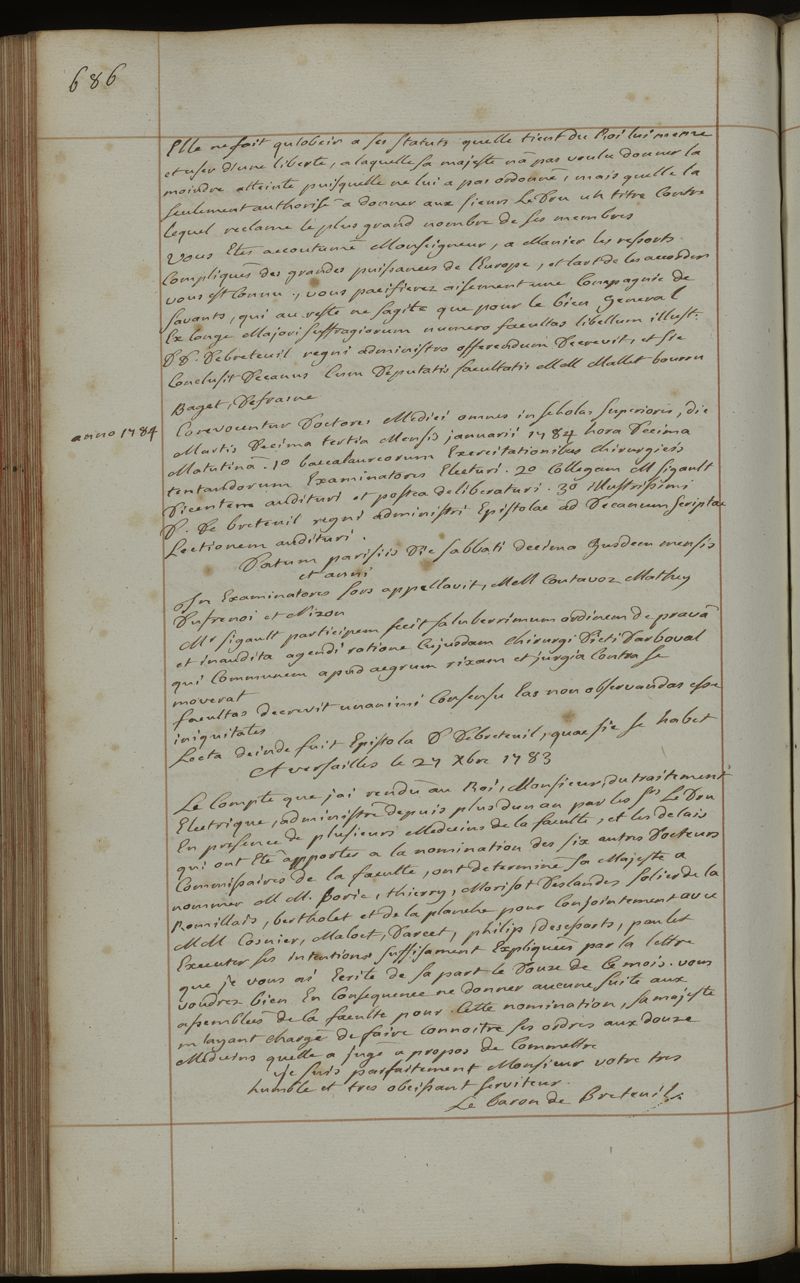 686
Elle ne fait qu'obeir a ses statuts quelle tient du Roi lui meme
et user d'une liberte, a laquelle sa majeste n'a pas voulu donner la
moindre atteinte puisquelle ne lui a pas ordonné, mais quelle la
seulement authorisé a donner aux sieurs Le Dru un titre contre
lequel reclame le plus grand nombre de ses membres
Vous Etes accoutumé Monseigneur, a Manier les ressorts
Compliqués des grandes puissances de l'Europe, et l'art de les accorder
vous est connu, vous pacifierez aisement une Compagnie de
savants, qui au reste ne s'agite que pour le bien general
Ex longe Majori suffragiorum numero facultas libellum illust.
DD. Debreteuil regni administro offerendum Decrevit, et sic
Conclusit Decanus Cum Deputatis facultatis MM Mallet bourru
Baget, Defrasne
anno 1784
Convocentur Doctores Medici omnes in scholas superiores, die
Martis Decima tertia Mensis januarii 1784 hora Decima
Matutina. 1o baccalaureorum Exercitationibus Chirurgicis
tentandorum Examinatores Electuri. 2o Collegam M sigault
Dicentem audituri et postea deliberaturi. 3o illustrissimi
D. De breteuil regni administri Epistolae ad Decanum scriptae
Lectionem audituri.
Datum parisiis Die sabbati decima Ejusdem mensis
et anni
In Examinatores sors appellavit, MM Contavoz Mathey
Dufrenoi et Nizon
Mr sigault participem fecit saluberrimum ordinem de pravâ
et inaudita agendi ratione Cujusdam Chirurgi Dicti Darboval
qui Communem apud aegrum rixam et jurgia contra se
moverat
facultas decrevit unanimi Consensu Eas non observandas esse
iniquitates
Lecta deinde fuit Epistola D Debreteuil, quae sic se habet
A versailles le 27 Xbre 1783
Le Compte que j'ai rendu au Roi, Monsieur, du traitement
Electrique, administré depuis plus d'un an par les srs Le Dru
En presence de plusieurs Medecins de la faculté, et les delais
qui ont Eté apportes a la nomination des six autres Docteurs
Commissaires de la faculté, ont determiné sa Majesté a
nommer MM. Borie, thierry, Morisot Deslandes solier de la
Romillais, bertholet et de la planche pour Conjointement avec
MM Cosnier, Maloet, Darcet, philip, desessarts, paulet
Executer ses intentions suffisament Expliquées par la lettre
que je vous ai Ecrite de sa part le Douze de Ce mois. vous
voudrez bien En Consequence ne donner aucune suite aux
assemblées de la faculté pour Cette nomination, sa majesté
m'ayant chargé de faire connoitre ses ordres aux douze
Medecins quelle a jugé a propos de Commettre
je suis parfaitement Monsieur votre tres
humble et tres obeissant serviteur.
Le baron de Breteuil.